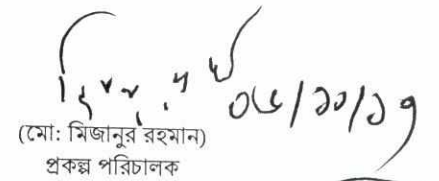 ০৫/১০/১৭
(মো: মিজানুর রহমান)
প্রকল্প পরিচালক